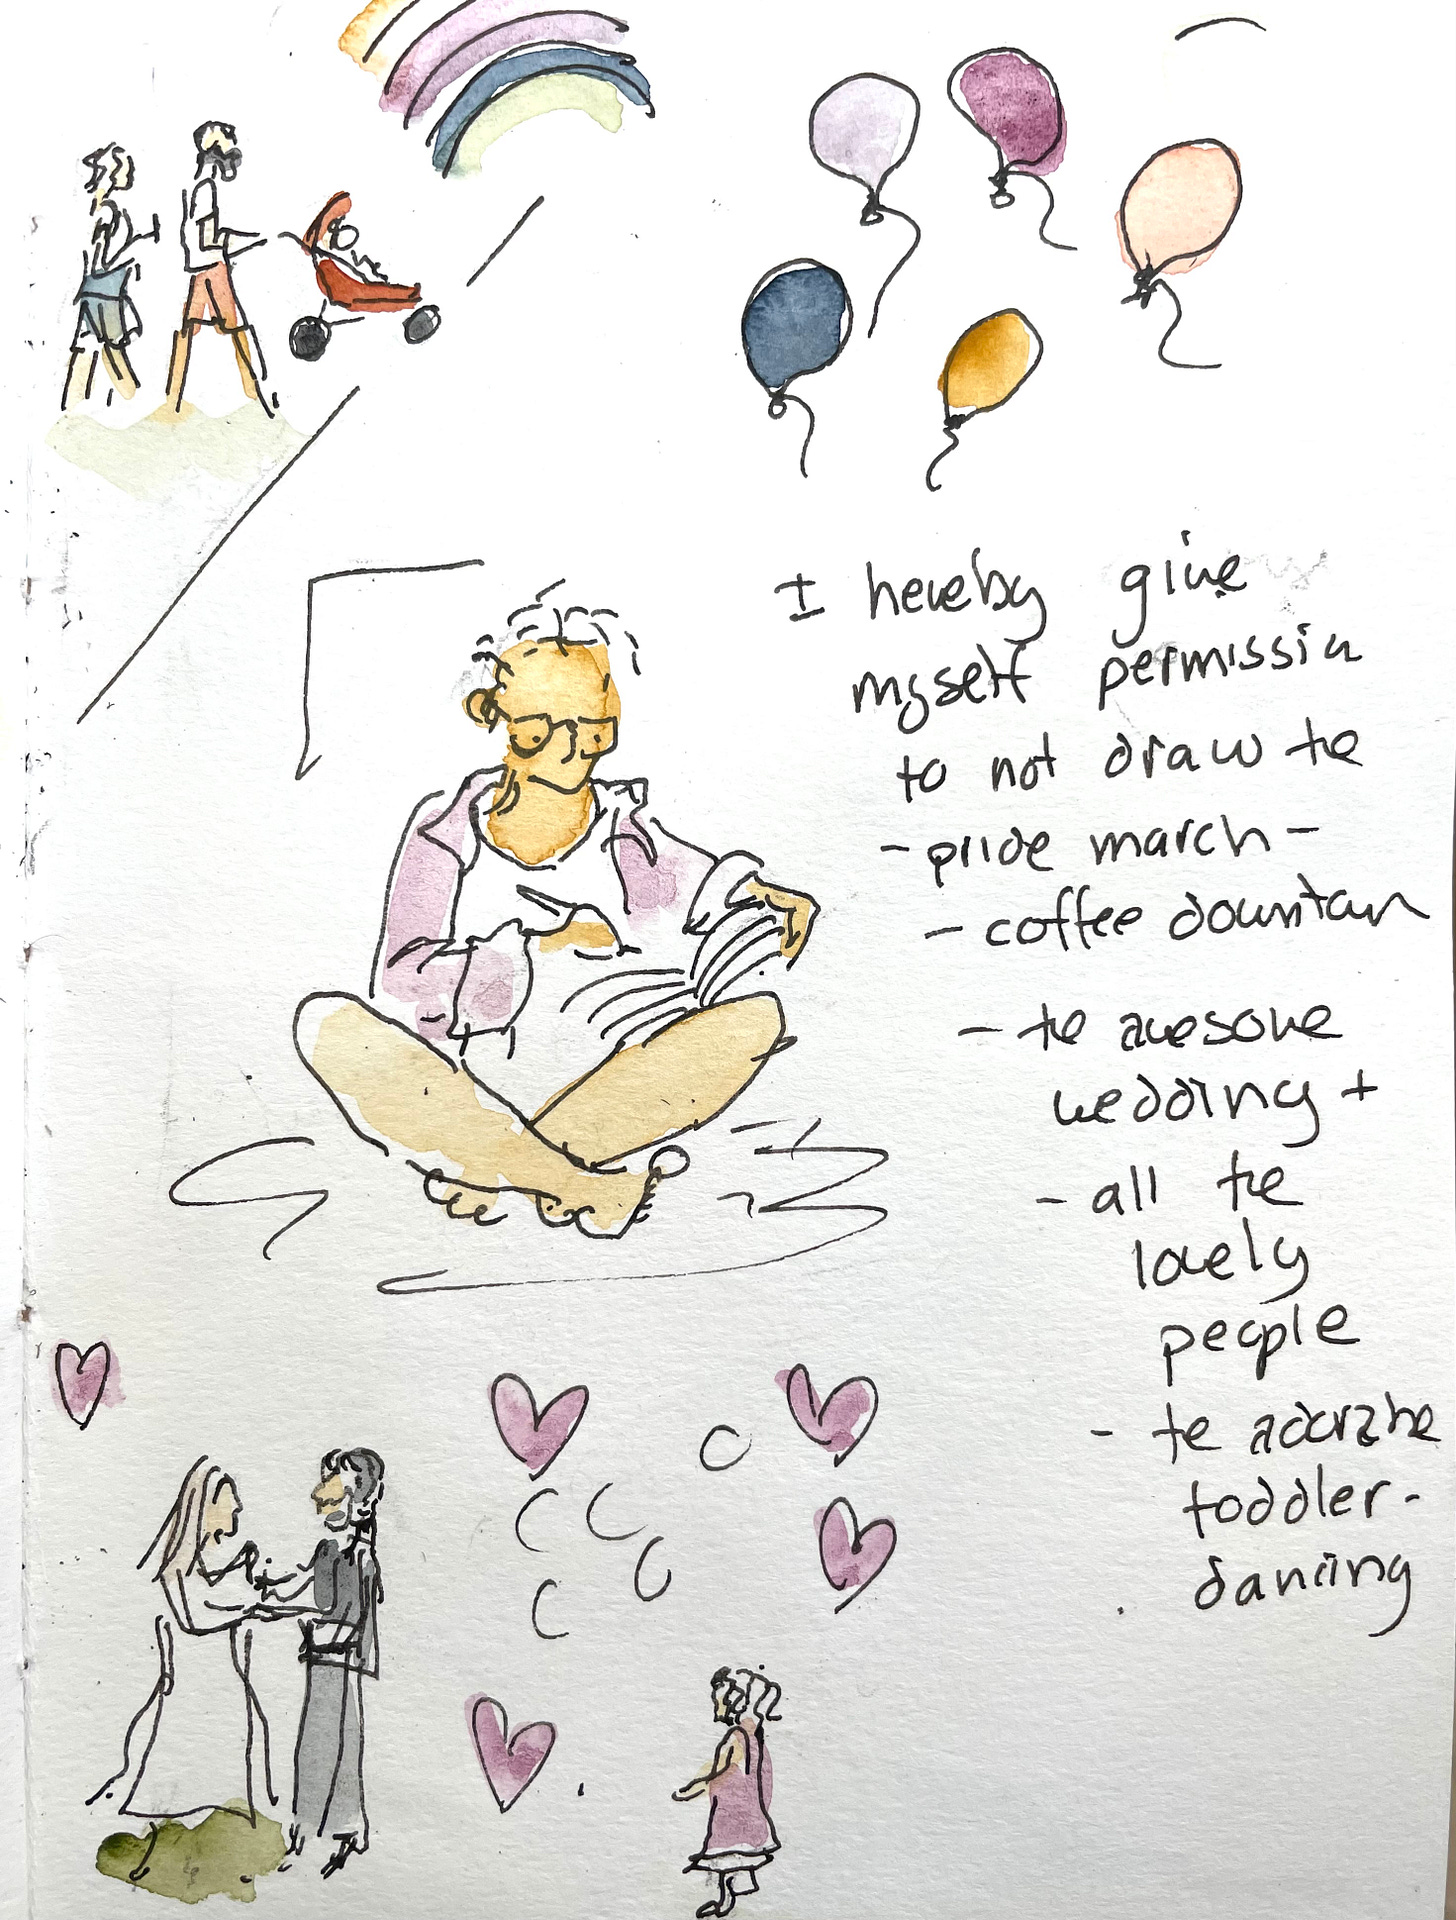 I hereby give
myself permission
to not draw the
- pride march -
- coffee downtown
- the awesome
wedding +
- all the
lovely
people
- the adorable
toddler-
dancing